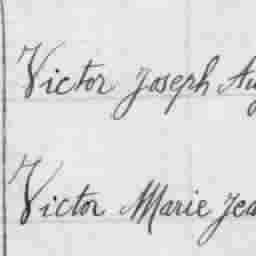 Victor Joseph Au
Victor Marie Jea